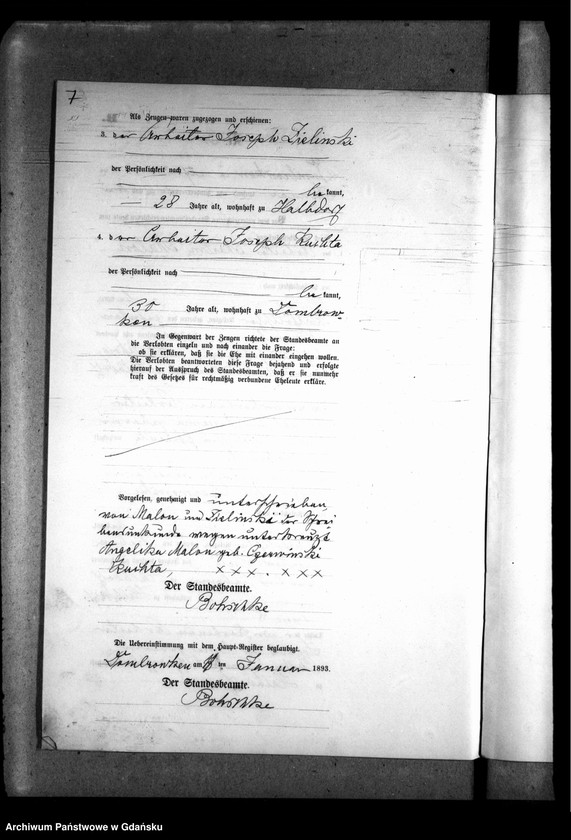 7
Als Zeugen waren zugezogen und erschienen:
3. der Arbeiter Joseph Zielinski
der Persönlichkeit nach
be kannt,
28 Jahre alt, wohnhaft zu Halbdorf
4. der Arbeiter Joseph Kuchta
der Persönlichkeit nach
be kannt,
30 Jahre alt, wohnhaft zu Dombrow-
ken
In Gegenwart der Zeugen richtete der Standesbeamte an
die Verlobten einzeln und nach einander die Frage:
ob sie erklären, daß sie die Ehe mit einander eingehen wollen.
Die Verlobten beantworteten diese Frage bejahend und erfolgte
hierauf der Ausspruch des Standesbeamten, daß er sie nunmehr
kraft des Gesetzes für rechtmäßig verbundene Eheleute erkläre.
Vorgelesen, genehmigt und unterschrieben
von Malon und Zielinski der Schrei
bensunkunde wegen unterkreuzt
Angelika Malon geb. Czerwinski
Kuchta, x x x . x x x
Der Standesbeamte.
Bohschke
Die Uebereinstimmung mit dem Haupt-Register beglaubigt.
Dombrowken am ten Januar 1893.
Der Standesbeamte.
Bohschke
Archiwum Państwowe w Gdańsku